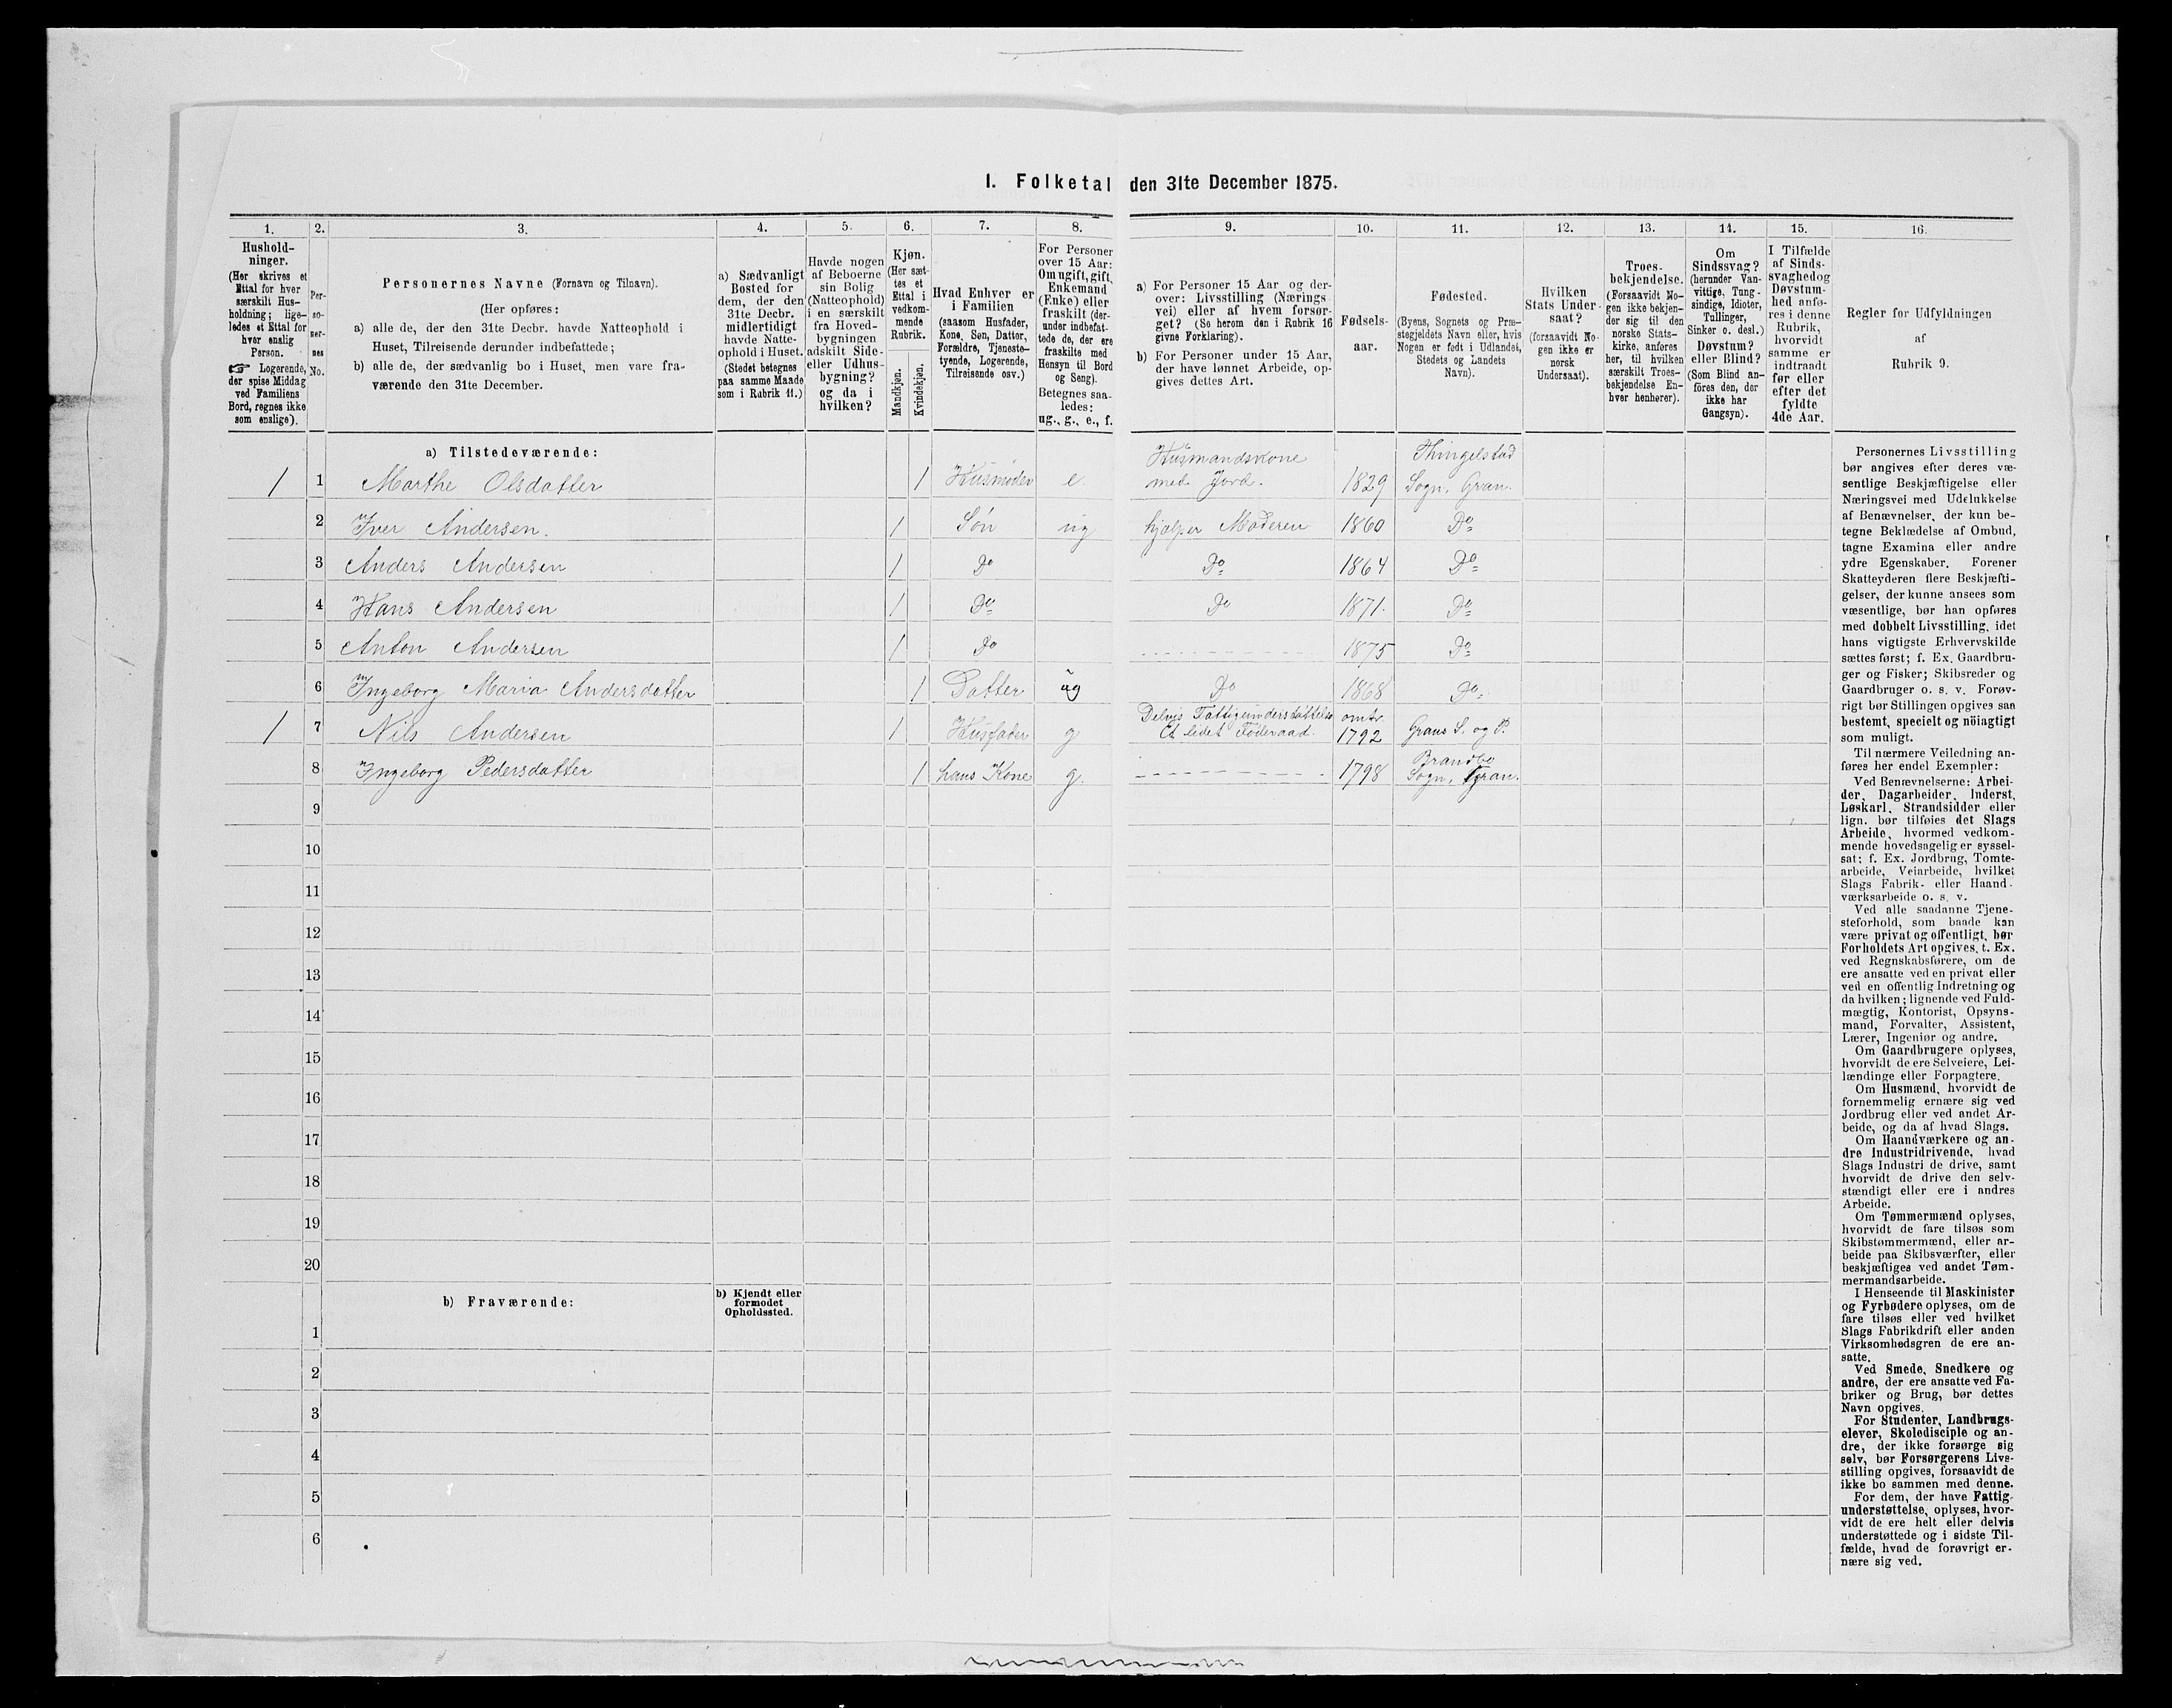 I. Folketal den 31te December 1875.
1. 2. 3. 4. 5. 6. 7. 8. 9. 10. 11. 12. 13. 14. 15. 16.
Hushold-
ninger.
(Her skrives et
Ettal for hver
særskilt Hus-
holdning; lige-
ledes et Ettal for
hver enslig
Person.
☞ Logerende,
der spise Middag
ved Familiens
Bord, regnes ikke
som enslige).
Per-
so-
ner-
nes
No.
Personernes Navne (Fornavn og Tilnavn).
(Her opføres:
a) alle de, der den 31te Decbr. havde Natteophold i
Huset, Tilreisende derunder indbefattede;
b) alle de, der sædvanlig bo i Huset, men vare fra-
værende den 31te December.
a) Sædvanligt
Bosted for
dem, der den
31te Decbr.
midlertidigt
havde Natte-
ophold i Huset.
(Stedet betegnes
paa samme Maade
som i Rubrik 11.)
Havde nogen
af Beboerne
sin Bolig
(Natteophold)
i en særskilt
fra Hoved-
bygningen
adskilt Side-
eller Udhus-
bygning?
og da i
hvilken?
Kjøn.
(Her sæt-
tes et
Ettal i
vedkom-
mende
Rubrik.
Mandkjøn.
Kvindekjøn.
Hvad Enhver er
i Familien
(saasom Husfader,
Kone, Søn, Datter,
Forældre, Tjeneste-
tyende, Logerende,
Tilreisende osv.)
For Personer
over 15 Aar:
Om ugift, gift,
Enkemand
(Enke) eller
fraskilt (der-
under indbefat-
tede de, der ere
fraskilte med
Hensyn til Bord
og Seng).
Betegnes saa-
ledes:
ug., g., e., f.
a) For Personer 15 Aar og der-
over: Livsstilling (Nærings-
vei) eller af hvem forsør-
get? (Se herom den i Rubrik 16
givne Forklaring).
b) For Personer under 15 Aar,
der have lønnet Arbeide, op-
gives dettes Art.
Fødsels-
aar.
Fødested.
(Byens, Sognets og Præ-
stegjeldets Navn eller, hvis
Nogen er født i Udlandet,
Stedets og Landets
Navn).
Hvilken
Stats Under-
saat?
(forsaavidt No-
gen ikke er
norsk
Undersaat).
Troes-
bekjendelse.
(Forsaavidt No-
gen ikke bekjen-
der sig til den
norske Stats-
kirke, anføres
her, til hvilken
særskilt Troes-
bekjendelse En-
hver henhører).
Om
Sindssvag?
(herunder Van-
vittige, Tung-
sindige, Idioter,
Tullinger,
Sinker o. desl.)
Døvstum?
eller Blind?
(Som Blind an-
føres den, der
ikke har
Gangsyn).
I Tilfælde
af Sinds-
svaghed og
Døvstum-
hed anfø-
res i denne
Rubrik,
hvorvidt
samme er
indtraadt
før eller
efter det
fyldte
4de Aar.
Regler for Udfyldningen
af
Rubrik 9.
a) Tilstedeværende:
1 1 Marthe Olsdatter 1 Husmoder e. Husmandskone med Jord. 1829 Thingelstad Sogn, Gran.
2 Iver Andersen. 1 Søn ug hjælper Moderen 1860 Do
3 Anders Andersen 1 Do Do 1864 Do
4 Hans Andersen 1 Do Do 1871. Do
5 Anton Andersen 1 Do 1875 Do
6 Ingeborg Maria Andersdatter 1 Datter ug Do 1868 Do
1 7 Nils Andersen 1 Husfader g Delvis Fattigunderstøttelse Et lidet Føderaad. omtr. 1792 Grans S. og P.
8 Ingeborg Pedersdatter 1 hans Kone g. 1798 Brandbo Sogn, Gran.
9
10
11
12
13
14
15
16
17
18
19
20
b) Fraværende:
b) Kjendt eller
formodet
Opholdssted.
1
2
3
4
5
6
Personernes Livsstilling
bør angives efter deres væ-
sentlige Beskjæftigelse eller
Næringsvei med Udelukkelse
af Benævnelser, der kun be-
tegne Beklædelse af Ombud,
tagne Examina eller andre
ydre Egenskaber. Forener
Skatteyderen flere Beskjæfti-
gelser, der kunne ansees som
væsentlige, bør han opføres
med dobbelt Livsstilling, idet
hans vigtigste Erhvervskilde
sættes først; f. Ex. Gaardbru-
ger og Fisker; Skibsreder og
Gaardbruger o. s. v. Forøv-
rigt bør Stillingen opgives saa
bestemt, specielt og nöiagtigt
som muligt.
Til nærmere Veiledning an-
føres her endel Exempler:
Ved Benævnelserne: Arbei-
der, Dagarbeider, Inderst,
Løskarl, Strandsidder eller
lign. bør tilføies det Slags
Arbeide, hvormed vedkom-
mende hovedsagelig er syssel-
sat; f. Ex. Jordbrug, Tomte-
arbeide, Veiarbeide, hvilket
Slags Fabrik- eller Haand-
værksarbeide o. s. v.
Ved alle saadanne Tjene-
steforhold, som baade kan
være privat og offentligt, bør
Forholdets Art opgives, t. Ex.
ved Regnskabsførere, om de
ere ansatte ved en privat eller
ved en offentlig Indretning og
da hvilken; lignende ved Fuld-
mægtig, Kontorist, Opsyns-
mand, Forvalter, Assistent,
Lærer, Ingeniør og andre.
Om Gaardbrugere oplyses,
hvorvidt de ere Selveiere, Lei-
lændinge eller Forpagtere.
Om Husmænd, hvorvidt de
fornemmelig ernære sig ved
Jordbrug eller ved andet Ar-
beide, og da af hvad Slags.
Om Haandværkere og an-
dre Industridrivende, hvad
Slags Industri de drive, samt
hvorvidt de drive den selv-
stændigt eller ere i andres
Arbeide.
Om Tømmermænd oplyses,
hvorvidt de fare tilsøs som
Skibstømmermænd, eller ar-
beide paa Skibsværfter, eller
beskjæftiges ved andet Tøm-
mermandsarbeide.
I Henseende til Maskinister
og Fyrbødere oplyses, om de
fare tilsøs eller ved hvilket
Slags Fabrikdrift eller anden
Virksomhedsgren de ere an-
satte.
Ved Smede, Snedkere og
andre, der ere ansatte ved Fa-
briker og Brug, bør dettes
Navn opgives.
For Studenter, Landbrugs-
elever, Skoledisciple og an-
dre, der ikke forsørge sig
selv, bør Forsørgerens Livs-
stilling opgives, forsaavidt de
ikke bo sammen med denne.
For dem, der have Fattig-
understøttelse, oplyses, hvor-
vidt de ere helt eller delvis
understøttede og i sidste Til-
fælde, hvad de forøvrigt er-
nære sig ved.